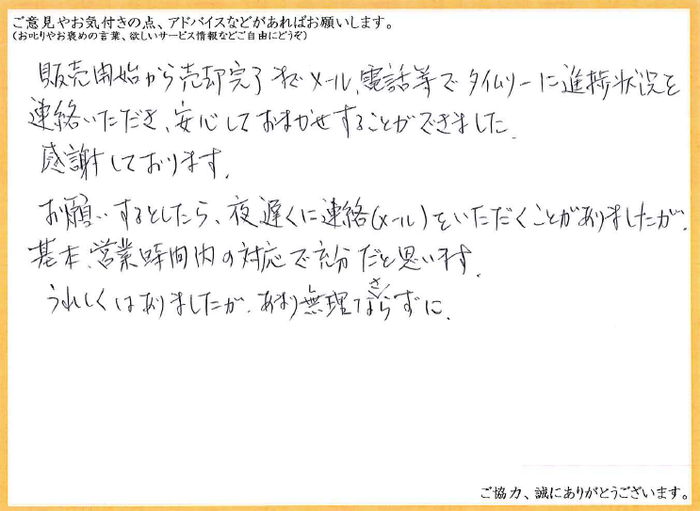 ご意見やお気付きの点、アドバイスなどがあればお願いします。
(お叱りやお褒めの言葉、欲しいサービス情報などご自由にどうぞ)
販売開始から売却完了までメール、電話等でタイムリーに進捗状況を
連絡いただき、安心しておまかせすることができました。
感謝しております。
お願いするとしたら、夜遅くに連絡(メール)をいただくことがありましたが、
基本、営業時間内の対応で充分だと思います。
うれしくはありましたが、あまり無理なさらずに。
ご協力、誠にありがとうございます。